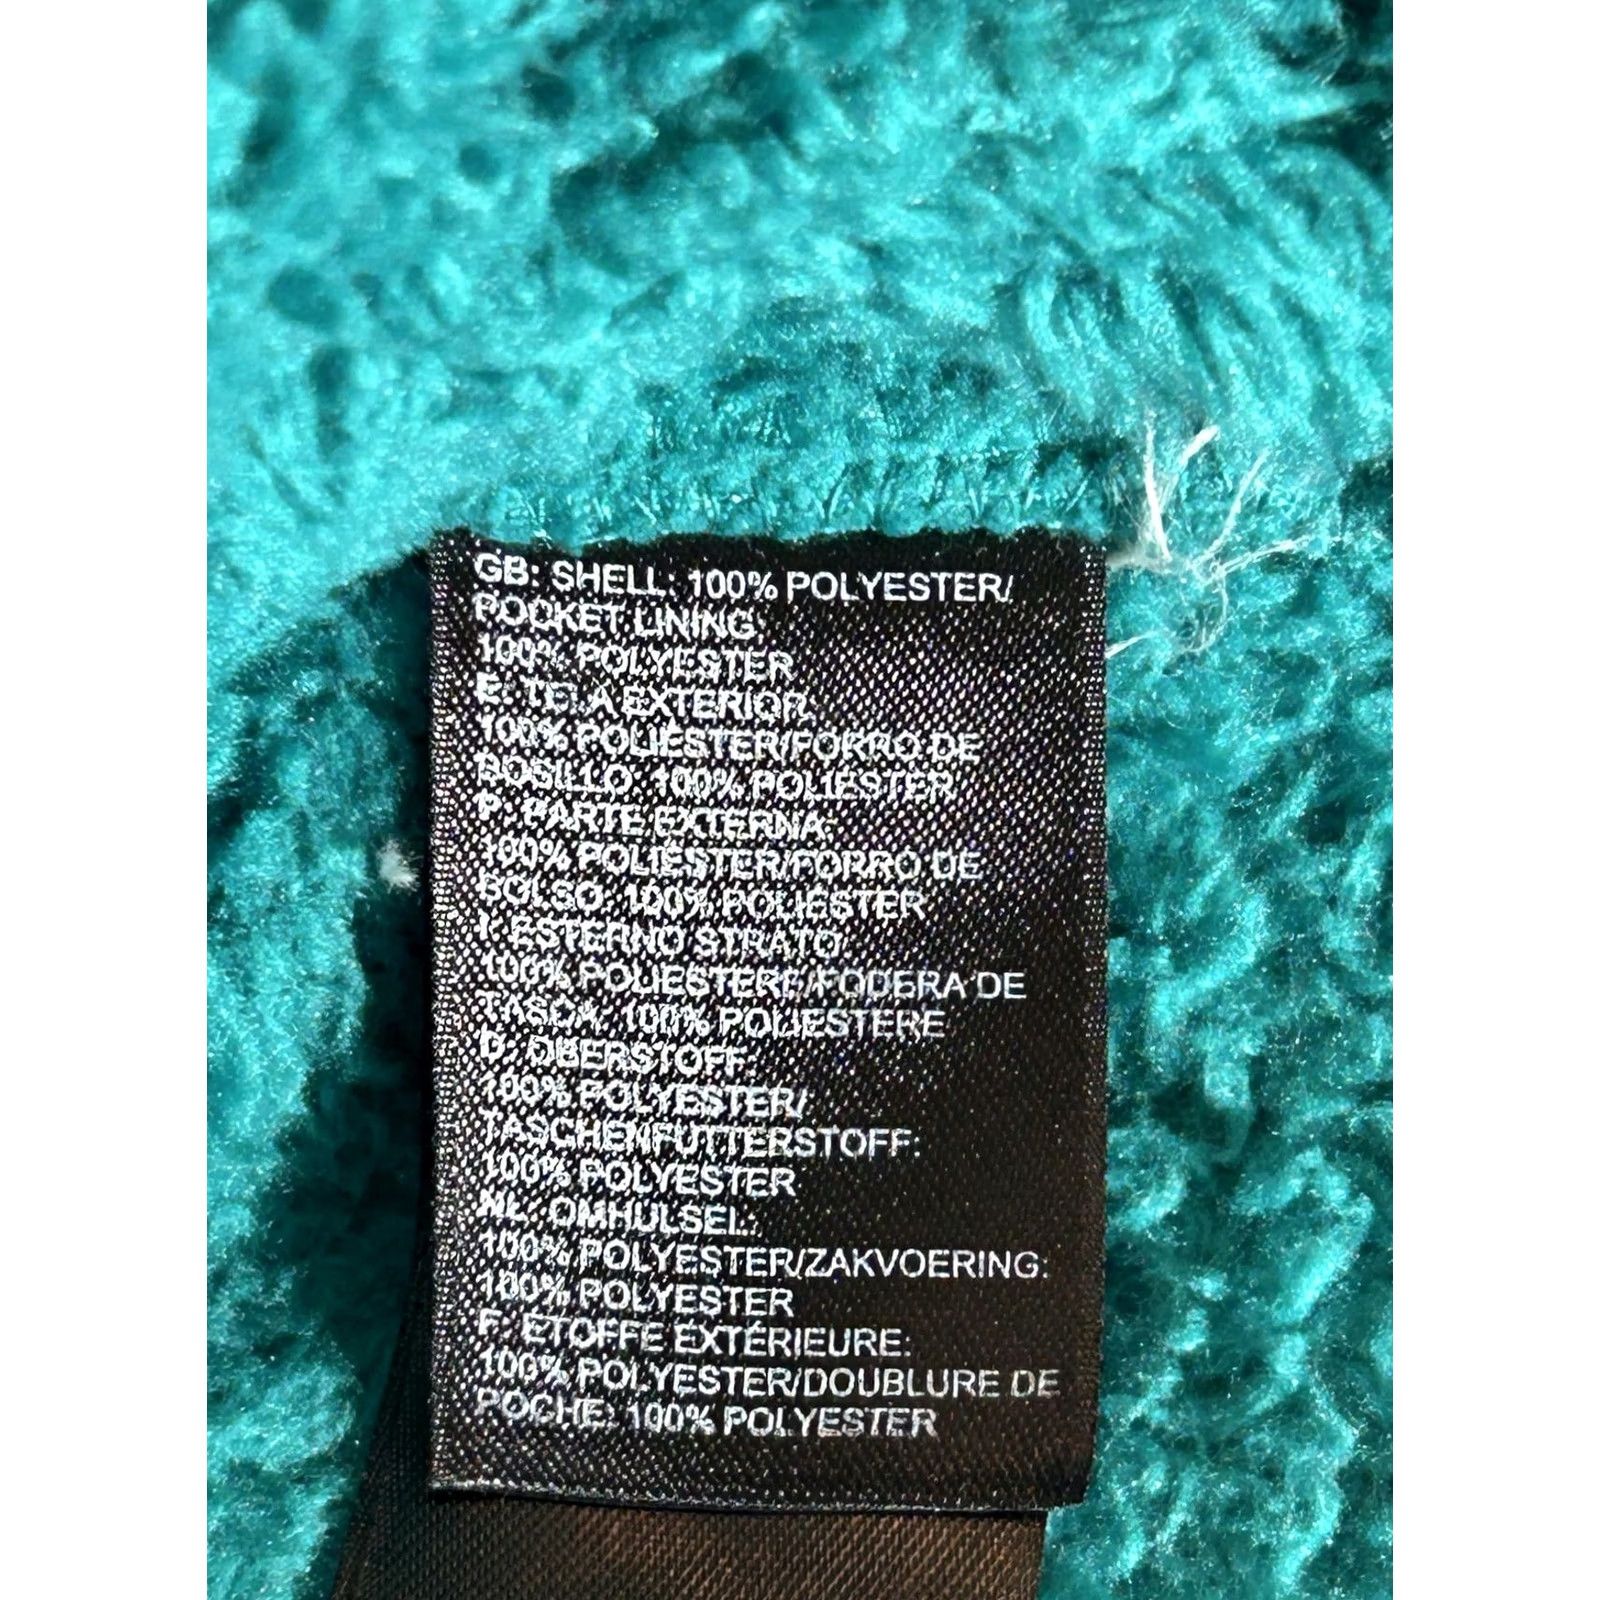 GB: SHELL: 100% POLYESTER/
POCKET LINING:
100% POLYESTER
E: TELA EXTERIOR:
100% POLIÉSTER/FORRO DE
BOSILLO: 100% POLIÉSTER
P: PARTE EXTERNA:
100% POLIÉSTER/FORRO DE
BOLSO: 100% POLIÉSTER
I: ESTERNO STRATO:
100% POLIESTERE/FODERA DE
TASCA: 100% POLIESTERE
D: OBERSTOFF:
100% POLYESTER/
TASCHENFUTTERSTOFF:
100% POLYESTER
NL: OMHULSEL:
100% POLYESTER/ZAKVOERING:
100% POLYESTER
F: ETOFFE EXTÉRIEURE:
100% POLYESTER/DOUBLURE DE
POCHE: 100% POLYESTER